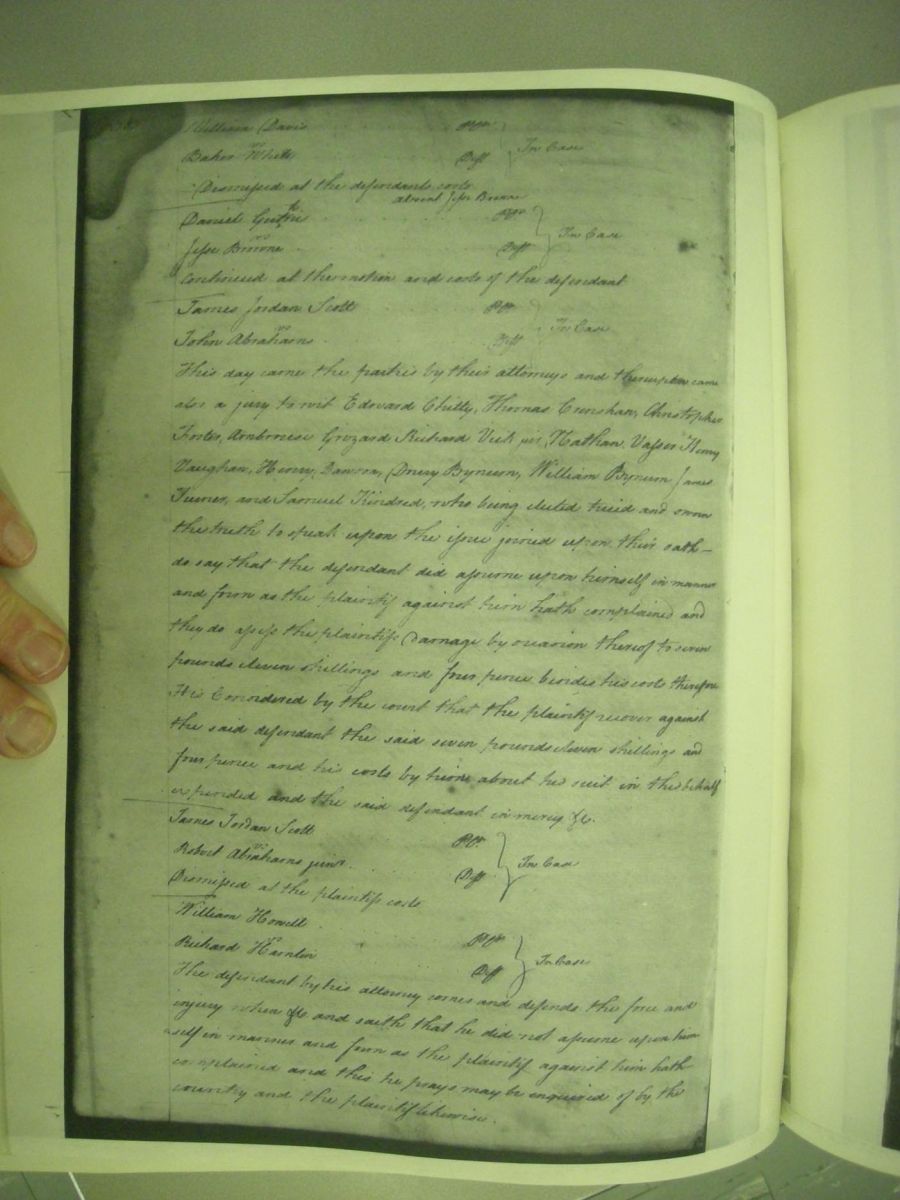 William Davis Pltf
vs In Case
Baker White Deft
Dismissed at the defendants costs
absent Jesse Browne
Daniel Guthrie Pltf
vs In Case
Jesse Browne Deft
Continued at the motion and costs of the defendant
James Jordan Scott Pltf
vs In Case
John Abrahams Deft
This day came the parties by their attorneys and thereupon came
also a jury to wit Edward Chitty, Thomas Crenshaw, Christopher
Foster, Ambrouse Grizard Richard Vick jur, Nathan Vasser Henry
Vaughan, Henry Dawson, Drury Bynum, William Bynum James
Turner, and Samuel Kindred, who being elected tried and sworn
the truth to speak upon the issue joined upon their oath
do say that the defendant did assume upon himself in manner
and form as the plaintif against him hath complained and
they do assess the plaintifs Damage by occasion thereof to seven
pounds eleven shillings and four pence besides his costs therefore
It is Considered by the court that the plaintif recover against
the said defendant the said seven pounds eleven shillings and
four pence and his costs by him about his suit in this behalf
expended and the said defendant in mercy &c.
James Jordan Scott Pltf
vs In Case
Robert Abrahams junr. Deft
Dismissed at the plaintifs costs
William Howell Pltf
vs In Case
Richard Hamlin Deft
The defendant by his attorney comes and defends the force and
injury when &c and saith that he did not assume upon him
self in manner and form as the plaintif against him hath
complained and this he prays may be enquired of by the
country and the plaintif likewise.